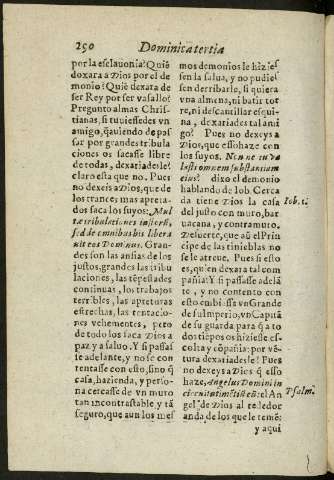 250 Dominica tertia
por la esclauonia? Quiẽ
dexara a Dios por el de
monio? Quiẽ dexara de
ser Rey por ser vasallo?
Pregunto almas Chris-
tianas, si tuuiessedes vn
amigo, q̃auiendo de pas
sar por grandes tribula
ciones os sacasse libre
de todas, dexariadesle?
claro esta que no. Pues
no dexeis a Dios, que de
los trances mas apreta-
dos saca los suyos: Mul
ta tribulationes iustorũ,
sed de omnibus his libera
uit eos Dominus. Gran-
des son las ansias de los
justos, grandes las tribu
laciones, las tẽpestades
continuas, los trabajos
terribles, las apreturas
estrechas, las tentacio-
nes vehementes, pero
de todo los saca Dios a
paz y a saluo. Y si passas
se adelante, y no se con
tentasse con esto, sino q̃
casa, hazienda, y perso-
na cercasse de vn muro
tan incontrastable, y tã
seguro, que aun los mes
mos demonios le hizies
sen la salua, y no pudies
sen derribarle, si quiera
vna almena, ni batir tor
re, ni descantillar esqui
na, dexariades tal ami
go? Pues no dexeys a
Dios, que esso haze con
los suyos. Nonne tu va
lasti omnem substantiam
eius? dixo el demonio
hablando de Iob. Cerca
da tiene Dios la casa
Iob. 1.
del justo con muro, bar
uacana, y contramuro.
De suerte, que aũ el Prin
cipe de las tinieblas no
se le atreue. Pues si esto
es, quiẽ dexara tal com
pañia? Y si passasse adelã
te, y no contento con
esto embiasse vn Grande
de su Imperio, vn Capitã
de su guarda para q̃ a to
dos tiẽpos os hiziesse es-
colta y cõpañia: por vẽ-
tura dexariadesle? Pues
no dexeys a Dios q̃ esso
haze, Angelus Domini in
circuitu timẽtiũ eũ: el An
Psalm.
gel de Dios al rededor
anda de los que le temẽ:
y aqui